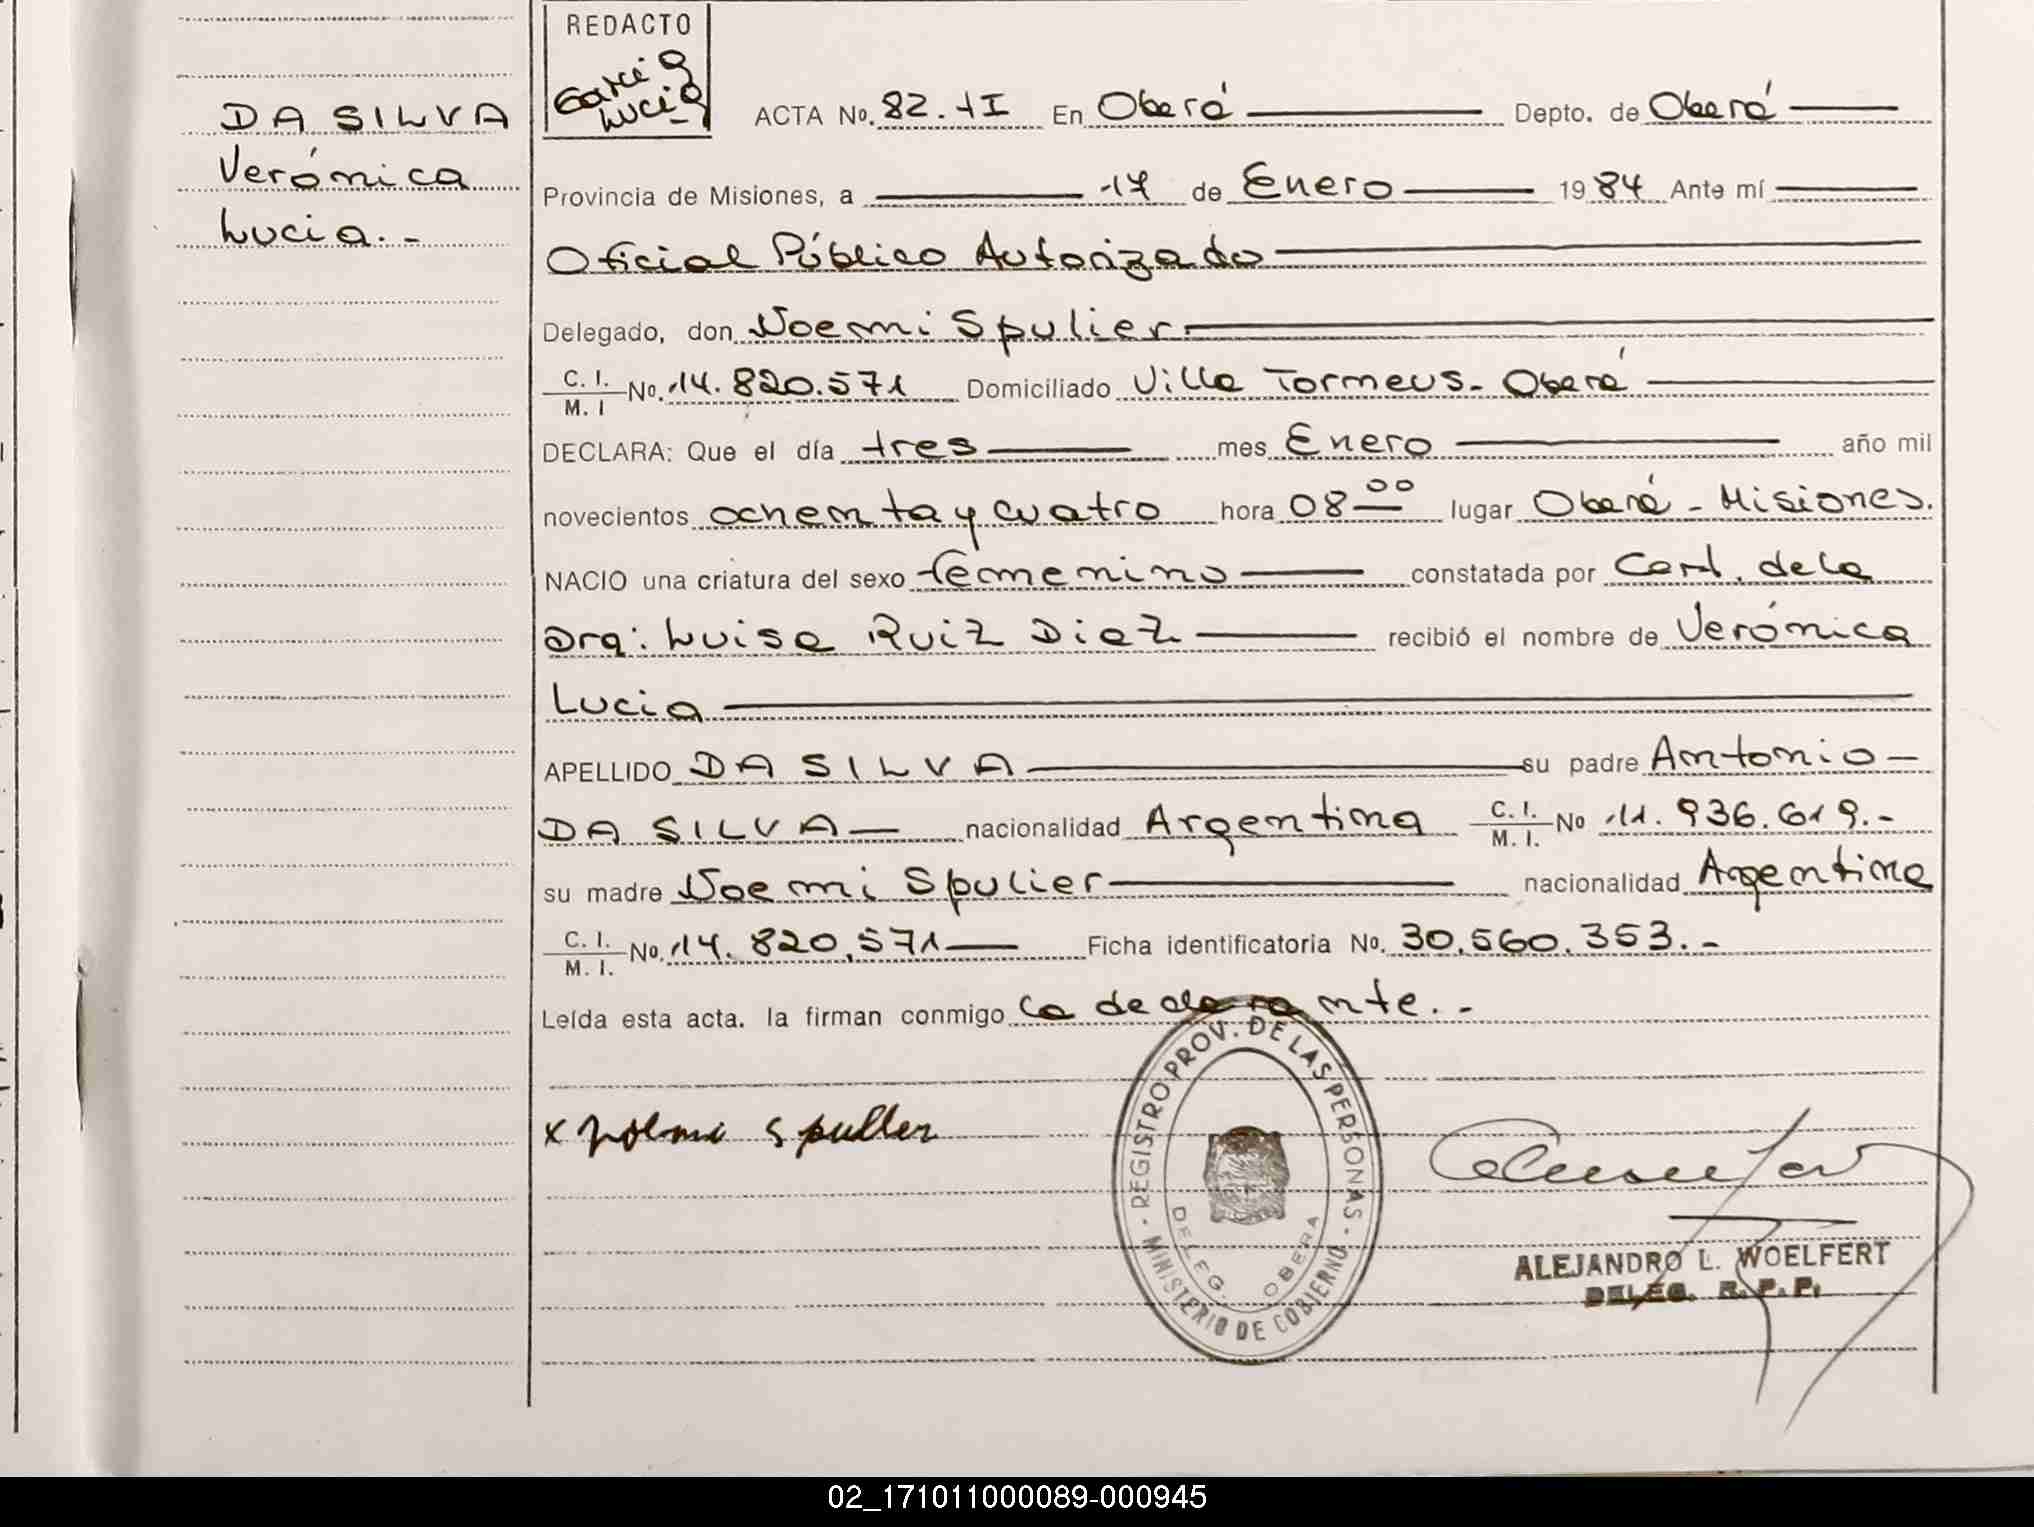 DA SILVA
Verónica
Lucia.-
REDACTO
Garcia
Lucia
ACTA No. 82. tI En Oberá Depto. de Oberá
Provincia de Misiones, a 17 de Enero 1984 Ante mí
Oficial Público Autorizado
Delegado, don Noemi Spulier
C. I.
M. I No. 14.820.571 Domiciliado Villa Torneus - Oberá
DECLARA: Que el día tres mes Enero año mil
novecientos ochenta y cuatro hora 08 00 lugar Oberá - Misiones.
NACIO una criatura del sexo femenino constatada por Cert. de la
Dra: Luisa Ruiz Diaz recibió el nombre de Verónica
Lucia
APELLIDO DA SILVA su padre Antonio
DA SILVA nacionalidad Argentina C. I.
M. I. No 11.936.619.-
su madre Noemi Spulier nacionalidad Argentina
C. I.
M. I. No. 14.820.571 Ficha identificatoria No. 30.560.353.-
Leída esta acta. la firman conmigo la declarante.-
x Noemi Spuller
· REGISTRO PROV. DE LAS PERSONAS ·
MINISTERIO DE GOBIERNO
DELEG. OBERA
ALEJANDRO L. WOELFERT
DELEG. R. P. P.
02_171011000089-000945